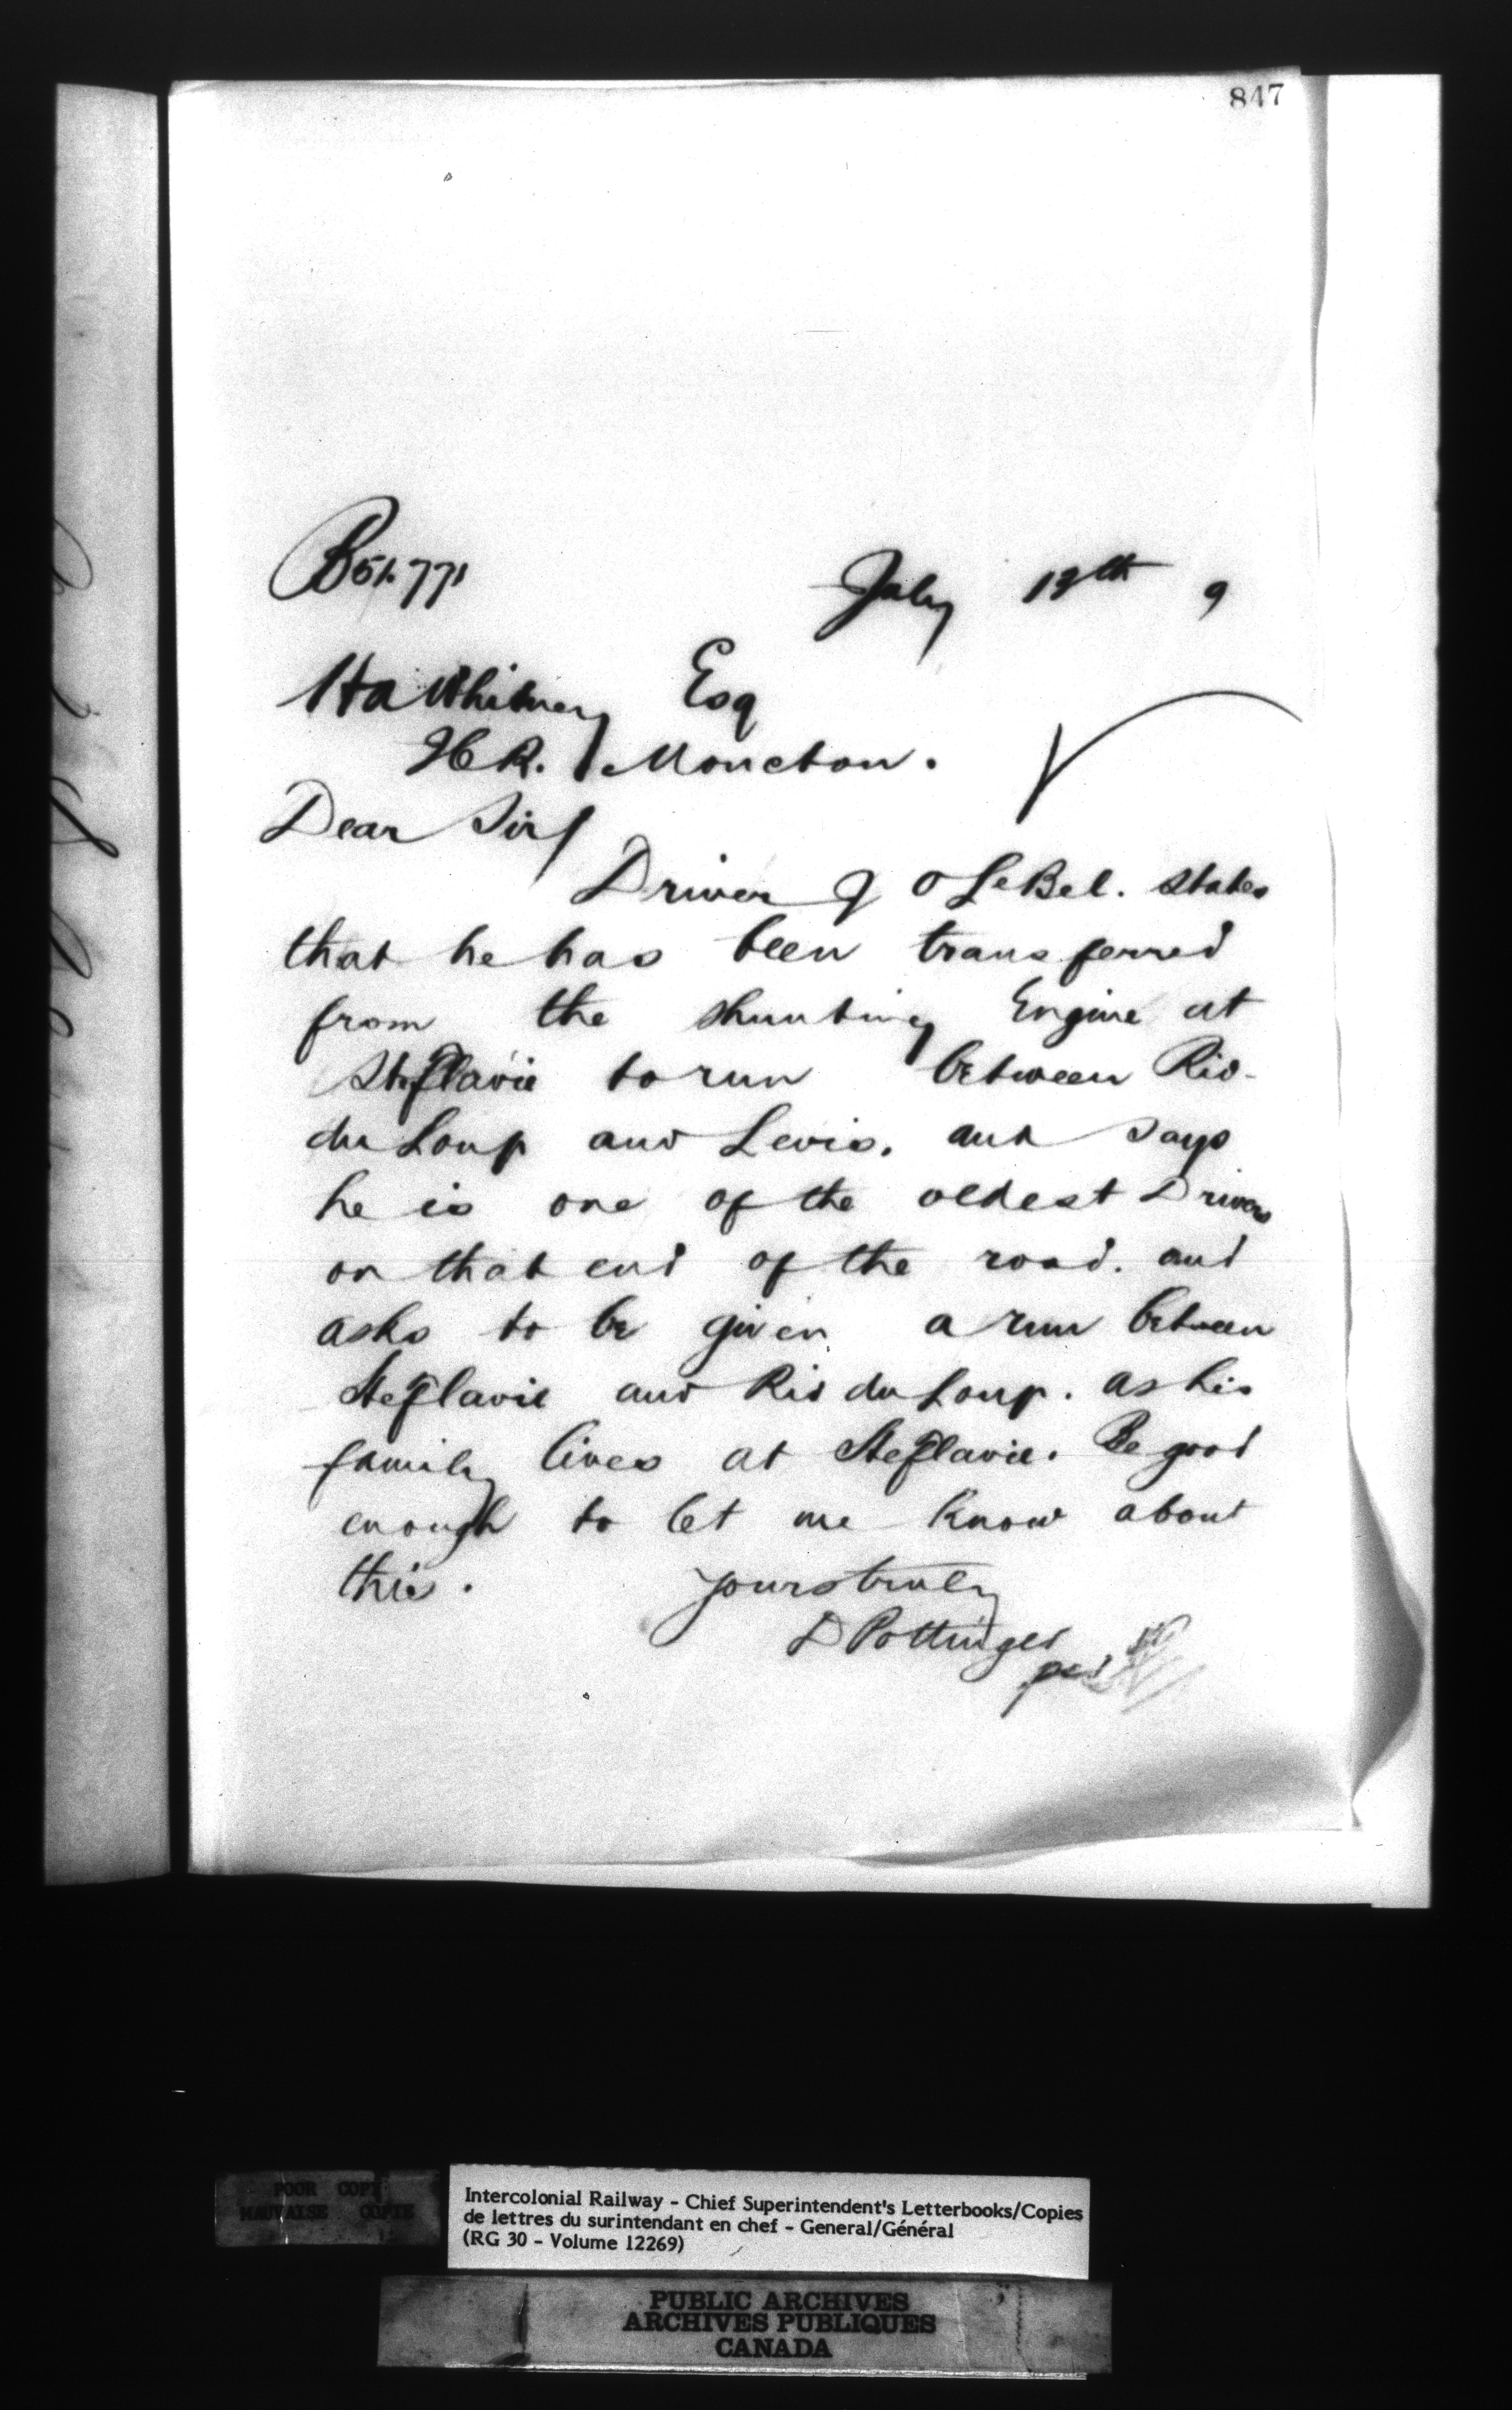 847
B51.771
July 13th 9
H A Whitney Esq
ICR. Moncton.
Dear Sir/
Driver J O LeBel. states
that he has been transferred
from the shunting Engine at
Ste Flavie to run between Riv.
du Loup and Levis. and says
he is one of the oldest Drivers
on that end of the road. and
asks to be given a run between
Ste Flavie and Riv du Loup. as his
family lives at Ste Flavie. Be good
enough to let me know about
this. yours truly
D Pottinger
per
POOR COPY
MAUVAISE COPIE
Intercolonial Railway - Chief Superintendent's Letterbooks/Copies
de lettres du surintendant en chef - General/Général
(RG 30 - Volume 12269)
PUBLIC ARCHIVES
ARCHIVES PUBLIQUES
CANADA